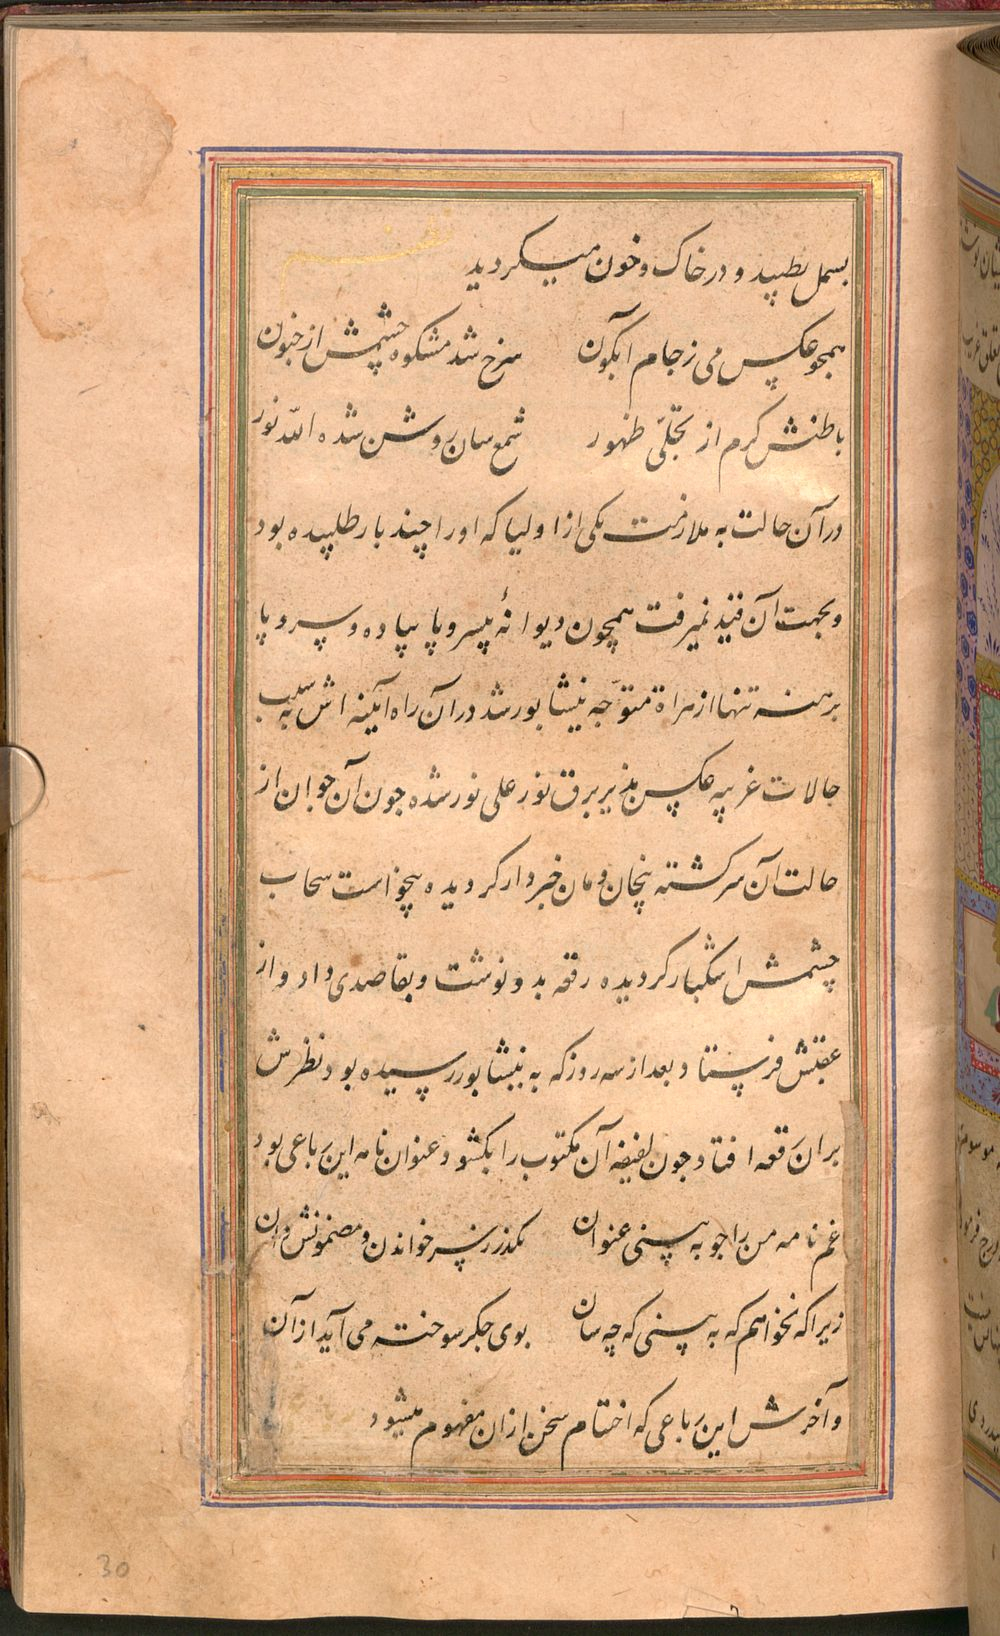 بسمل بطپید و در خاک و خون میگردید
نظم
همچو عکس می ز جام ابگون سرخ شد مشکوه چشمش از خون
باطنش کرم از تجلّی ظهور شمع سان روشن شده اللّه نور
در آن حالت به ملازمت یکی از اولیا که او را چند بار طلبیده بود
و بجهت آن قید نمیرفت همچون دیوانهٔ بیسر و پا پیاده و سر و پا
برهنه تنها از هراة متوّجه نیشابور شد در آن راه آیینه اش به سبب
حالات غریبه عکس پذیر برق نور علی نور شده چون آن جوان از
حالت آن سرکشته بیخان و مان خبردار کردیده بیخواست سحاب
چشمش اشکبار کردیده رقعه بدو نوشت و بقاصدی داد و از
عقبش فرستاد بعد از سه روز که به نیشابور رسیده بود نظرش
بران رقعه افتاد چون لفیفه آن مکتوب را بکشود عنوان نامه این رباعی بود
غم نامه من را چو به بینی عنوان بکذر ز سر خواندن و مضمونش دان
زیرا که نخواهم که به بینی که چه سان بوی جکر سوخته می آید از آن
و آخرش این رباعی که اختتام سخن ازان مفهوم میشود
30